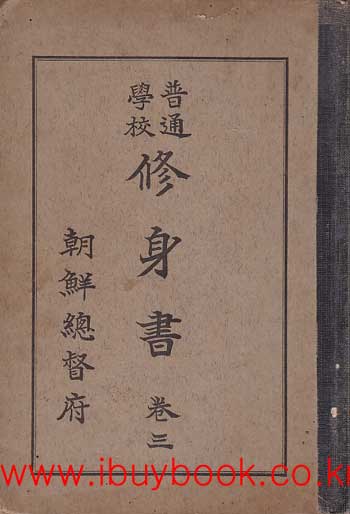 普通
學校
修身書 卷三
朝鮮總督府
www.ibuybook.co.kr